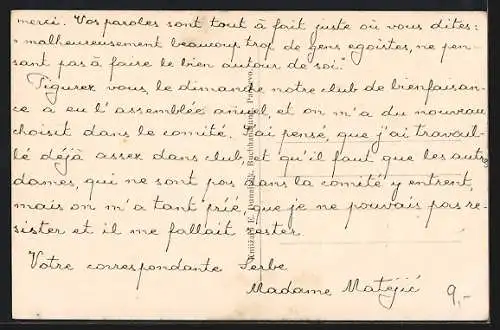 merci. Vos paroles sont tout à fait juste où vous dites:
"malheureusement beaucoup trop de gens egoïstes, ne pen-
sant pas à faire le bien autour de soi."
Figurez vous, le dimanche notre club de bienfaisan-
ce a eu l'assemblée anuel, et on m'a du nouveau
choisit dans le comité. J'ai pensé, que j'ai travail-
lé déjà assez dans club, et qu'il faut que les autres
dames, qui ne sont pas dans la comité y entrent,
mais on m'a tant prié, que je ne pouvais pas re-
sister et il me fallait rester.
Votre correspondante Serbe
Madame Matéjić
9,-